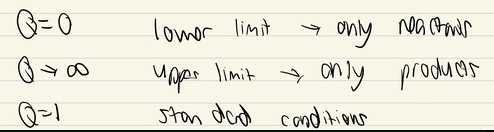 Q=0 lower limit → only reactants
Q→∞ upper limit → only products
Q=1 standard conditions